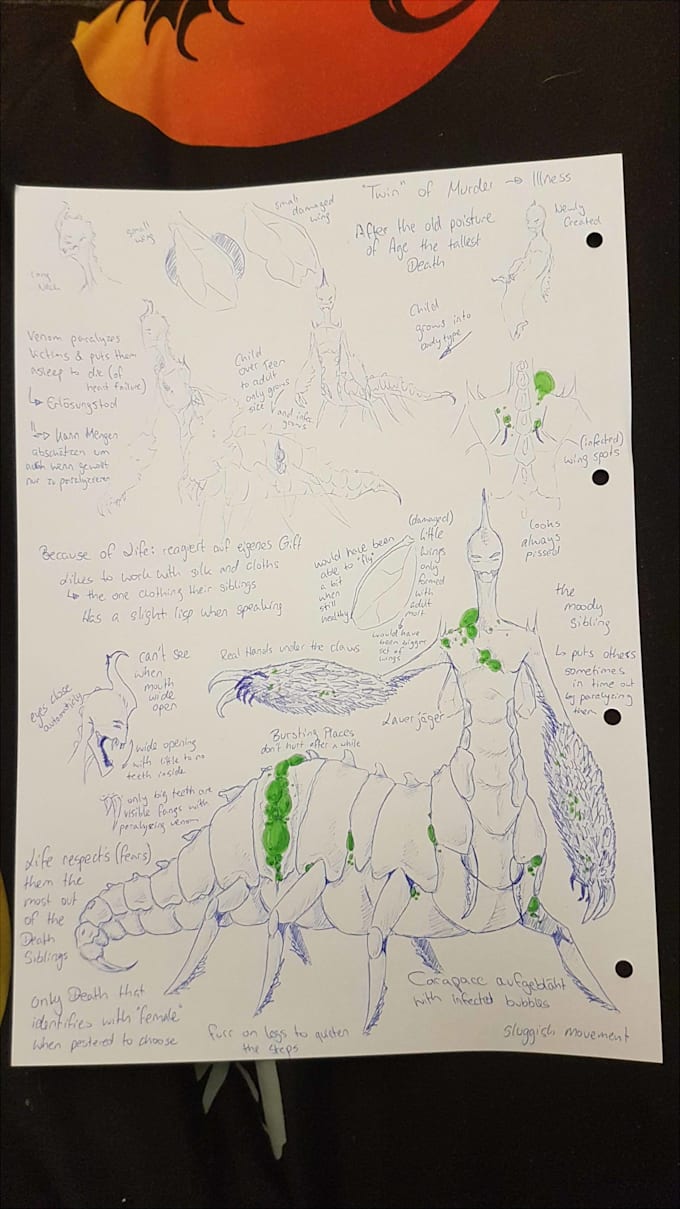 "Twin" of Murder → Illness
small damaged wing
small wing
Long
Neck
After the old poisture
of Age the tallest
Death
Newly
Created
Child
grows into
bodytype
Venom paralyzes
Victims & puts them
asleep to die (of
heart failure)
↳ Erlösungstod
↳ Kann Mengen
abschätzen um
auch wenn gewollt
nur zu paralyzieren
Child
over Teen
to adult
only grows
size
and infec
grows
(infected)
wing spots
Because of Life: reagiert auf eigenes Gift
Likes to work with silk and cloths
↳ the one clothing their siblings
Has a slight lisp when speaking
would have been
able to "fly"
a bit
when
still
healthy
(damaged)
little
wings
only
formed
with
adult
molt
would have
been bigger
set of
wings
Looks
always
pissed
the
moody
Sibling
↳ puts others
sometimes
in time out
by paralyzing
them
eyes close
automaticly
can't see
when
mouth
wide
open
wide opening
with little to no
teeth inside
only big teeth are
visible fangs with
paralyzing venom
Real Hands under the claws
Lauerjäger
Bursting Places
don't hurt after a while
Life respects (fears)
them the
most out
of the
Death
Siblings
only Death that
identifies with "female"
when pestered to choose
furr on legs to quieten
the steps
Carapacc aufgebläht
with infected bubbles
sluggish movement